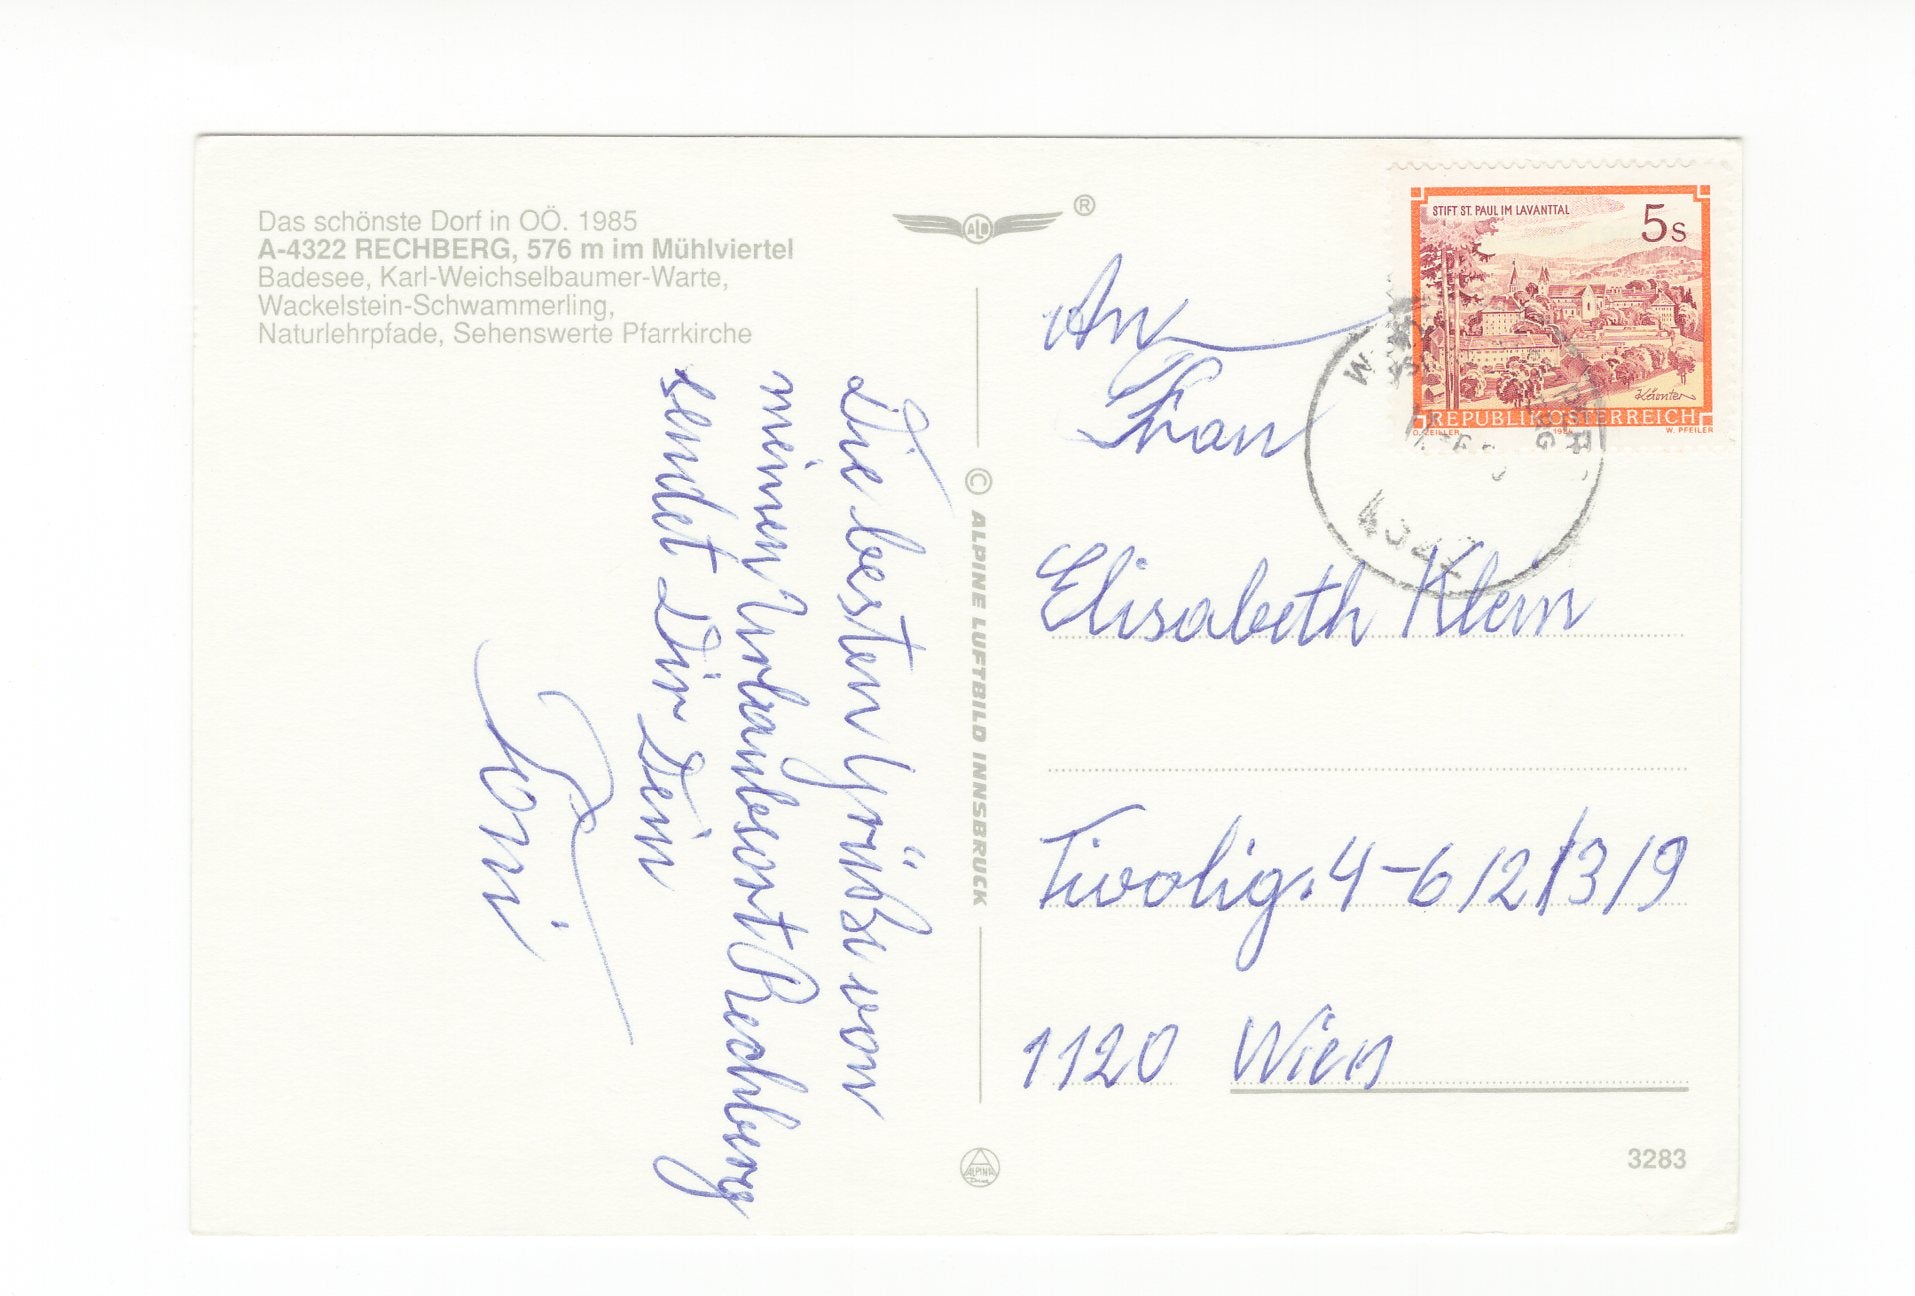 Das schönste Dorf in OÖ. 1985
A-4322 RECHBERG, 576 m im Mühlviertel
Badesee, Karl-Weichselbaumer-Warte,
Wackelstein-Schwammerling,
Naturlehrpfade, Sehenswerte Pfarrkirche
Die besten Grüße von
meinen Urlaubsort Rechberg
sendet Dir Dein
Toni
ALB ®
© ALPINE LUFTBILD INNSBRUCK
ALPINA
STIFT ST. PAUL IM LAVANTTAL
5s
Kärnten
REPUBLIK ÖSTERREICH
O. ZEILLER
W. PFEILER
4322
An
Frau
Elisabeth Klein
Tivolig. 4-6/2/3/9
1120 Wien
3283